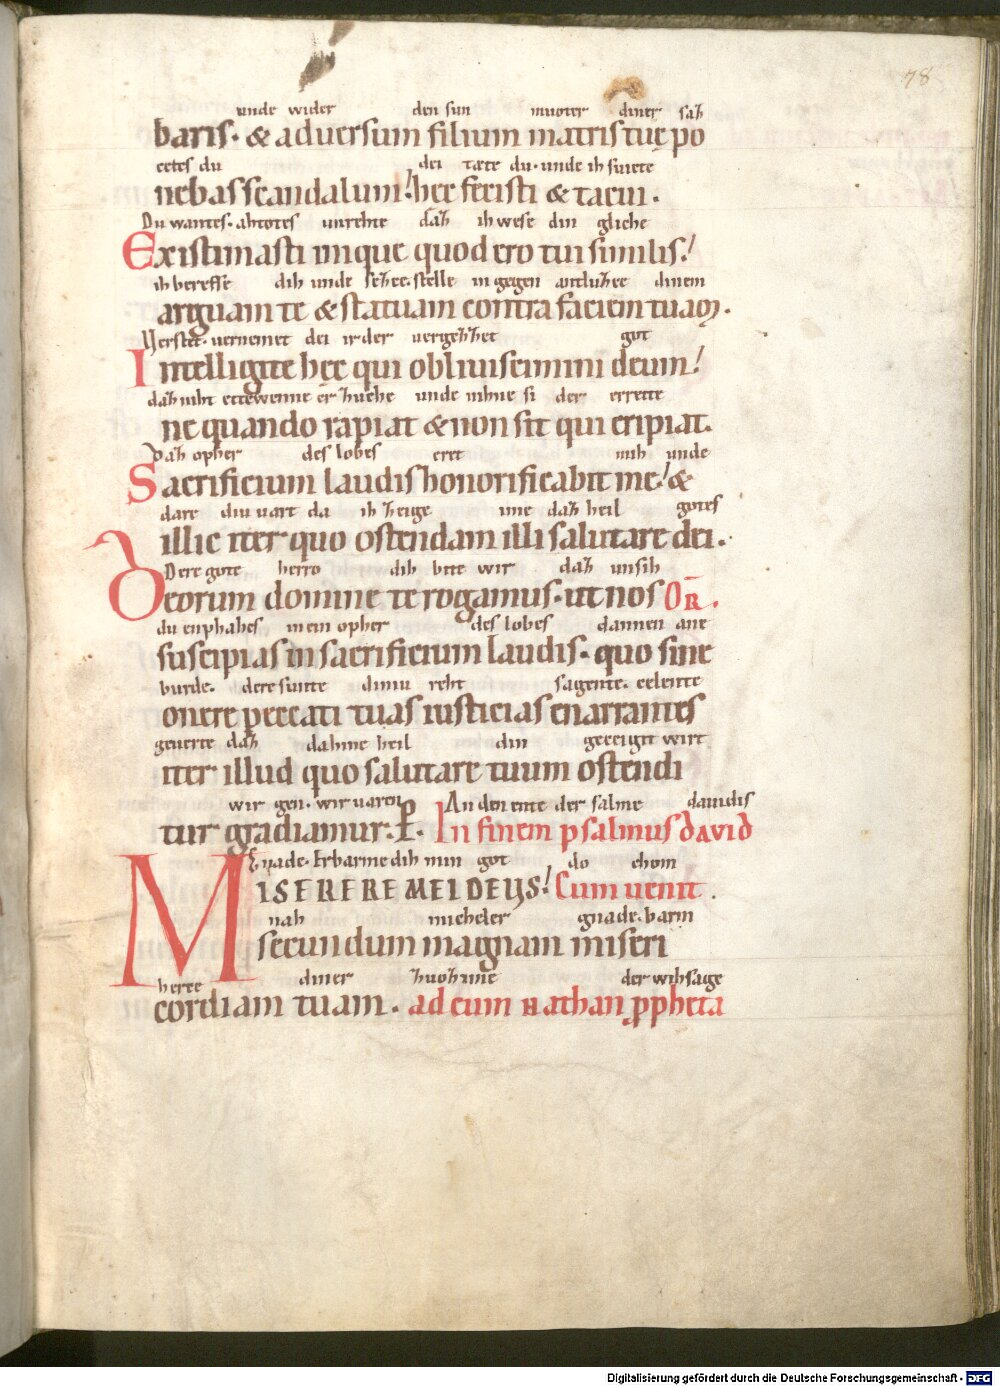 78
unde wider den sun muoter diner saƶ
baris. & aduersum filium matris tuę po
cetes du dei tæte du. unde ih suiete
nebas scandalum! hec fecisti & tacui.
Du wantes. ahtotes unrehte daƶ ih wese din gliche
Existimasti inique quod ero tui similis!
ih bereffe dih unde seƶce. stelle in gegen antluƶce dinem
arguam te & statuam contra faciem tuam.
Uerstet. uernemet dei ir der uergeƶƶet got
Intelligite hęc qui obliuiscimini deum!
daƶ niht ettewenne er ƶuche unde nihne si der errette
ne quando rapiat & non sit qui eripiat.
Daƶ opher des lobes eret mih unde
Sacrificium laudis honorificabit me! &
dare diu uart da ih ƶeige ime daƶ heil gotes
illic iter quo ostendam illi salutare dei.
Dere gote herro dih bite wir daƶ unsih
Deorum domine te rogamus. ut nos OR.
du enphahes in ein opher des lobes dannen ane
suscipias in sacrificium laudis. quo sine
burde. dere sunte diniu reht sagente. celente
onere peccati tuas iusticias enarrantes
geuerte daƶ dahine heil din geceigit wirt
iter illud quo salutare tuum ostendi
wir gen. wir uaren An den ente der salme dauidis
tur gradiamur. P. In finem psalmus david
Gnade. Erbarme dih min got do chom
MISERERE MEI DEUS! Cum uenit.
nah micheler gnade. barm
secundum magnam miseri
herce diner ƶuoƶ ime der wihsage
cordiam tuam. ad eum Nathan ppheta
Digitalisierung gefördert durch die Deutsche Forschungsgemeinschaft - DFG